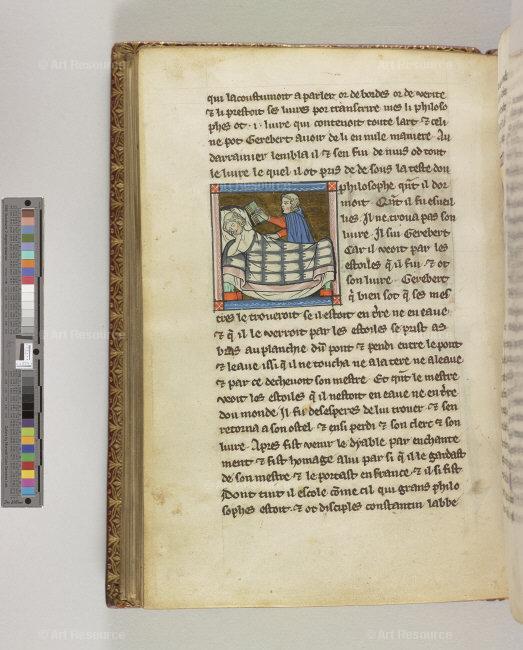 qui lacoustumoit a parler or de bordes or de verite
⁊ li prestoit ses liures por transcrire mes li philoso
phes ot .i. liure qui contenoit toute lart ⁊ celi
ne pot Gerebert auoir de li en nule maniere Au
darrainier lembla il ⁊ sen fui de nuis od tout
le liure le quel il ot pris de de sous la teste dou
philosophe qnt il dor
moit Qnt il fu esueil
lies. Il ne troua pas son
liure. Il sui Gerebert
Car il veoit par les
estoiles q il fui ⁊ ot
son liure. Gerebert
q bien sot q ses mes
tres le troueroit se il estoit en tre ne en eaue
⁊ q il le verroit par les estoiles se prist as
bras au planche du pont ⁊ pendi entre le pont
⁊ leaue issi q il ne toucha ne a la tere ne a leaue
⁊ par ce dechenoit son mestre. Et qnt le mestre
veoit les estoiles q il nestoit en eaue ne en tre
dou monde Il fu desesperes de lui trouer ⁊ sen
retorna a son ostel ⁊ ensi perdi ⁊ son clerc ⁊ son
liure. Apres fist venir le dyable par enchante
ment ⁊ fist homage a lui par si q il le gardast
de son mestre ⁊ le portast en france ⁊ il si fist
Adont tint il escole come cil qui grans philo
sophes estoit ⁊ ot disciples constantin labbe
© Art Resource
© Art Resource
© Art Resource
© Art Resource
© Art Resource
© Art Resource